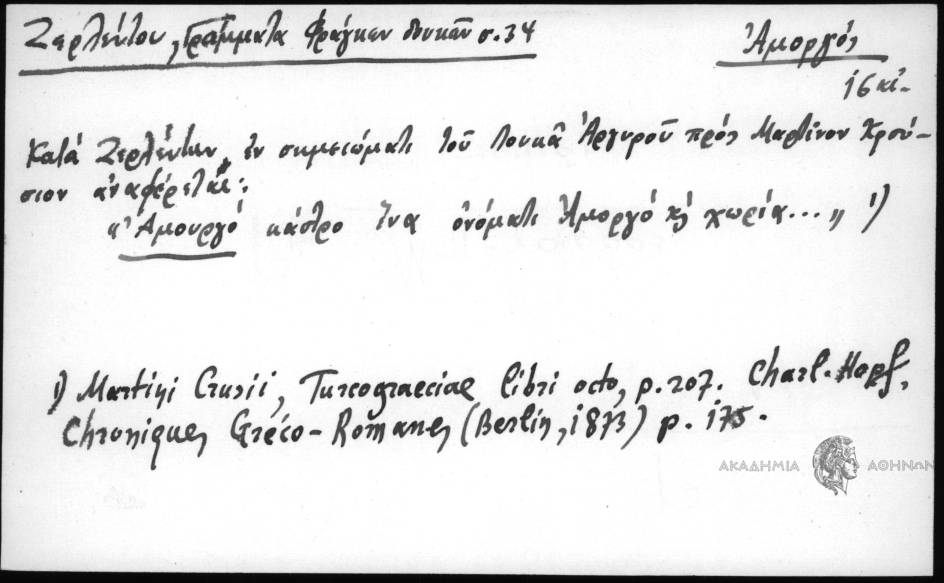 Ζερλέντου, Γράμματα Φράγκων δουκῶν σ. 34
Ἀμοργός
16 αἰ.
Κατά Ζερλέντην ἐν σημειώματι τοῦ Λουκᾶ Ἀργυροῦ πρός Μαρτῖνον Κρού-
σιον ἀναφέρεται:
«Ἀμουργό κάστρο ἕνα ὀνόματι Ἀμοργό κ χωρία...„ 1)
1) Martini Crusii, Turcograeciae libri octo, p. 207. Charl. Hopf,
Chroniques Gréco-Romanes (Berlin, 1873) p. 175.
ΑΚΑΔΗΜΙΑ ΑΘΗΝΩΝ